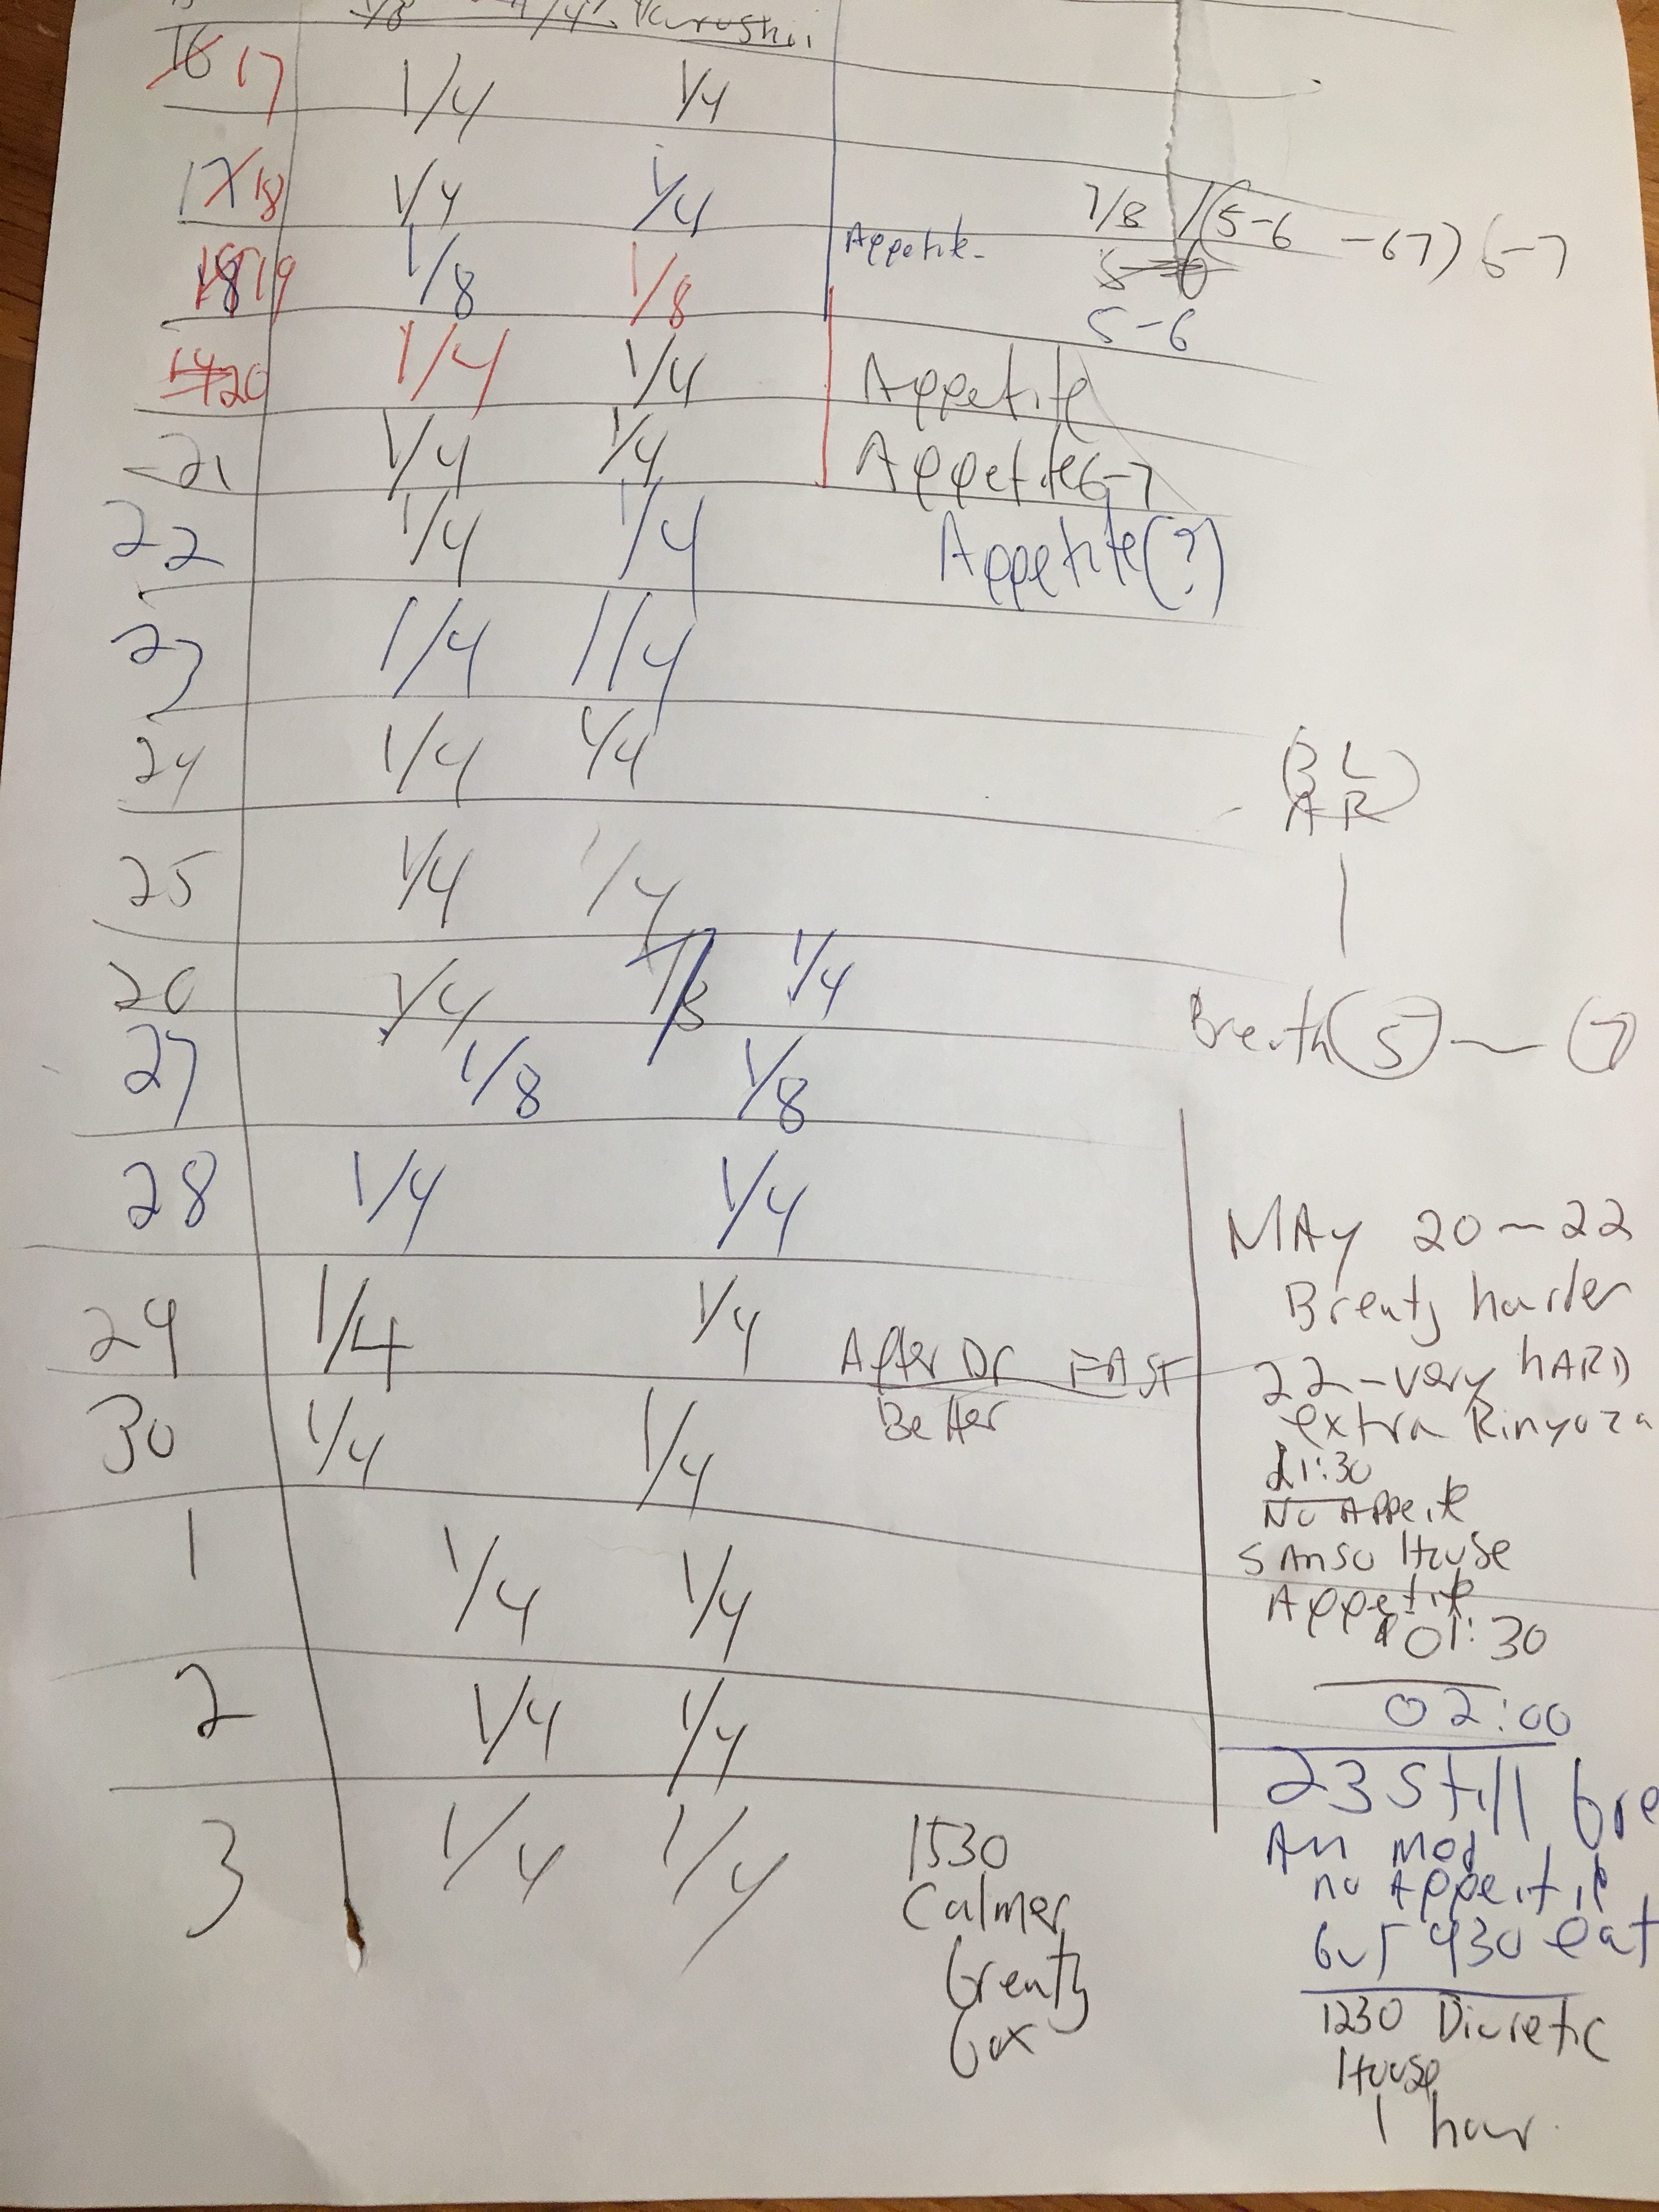 1/8 1/4 Kurushii
16 17 1/4 1/4
17 18 1/4 1/4
7/8 /(5-6 -67) 6-7
18 19 1/8 1/8 Appetite
5-6
5-6
20 1/4 1/4 Appetite
21 1/4 1/4 Appetite 6-7
22 1/4 1/4 Appetite(?)
23 1/4 1/4
24 1/4 1/4
(BL)
AR
25 1/4 1/4
26 1/4 1/8 1/4
Breath (5) ~ (7)
27 1/8 1/8
28 1/4 1/4
29 1/4 1/4 After Dr FAST
Better
30 1/4 1/4
1 1/4 1/4
2 1/4 1/4
3 1/4 1/4
1530
Calmer
breath
box
MAY 20-22
Breath harder
22-very hARD
extra Rinyoza
21:30
No Appetite
SAnso House
Appetite
01:30
02:00
23 Still bre
AM Mod
no Appetite
but 430 eat
1230 Diuretic
House
1 hour